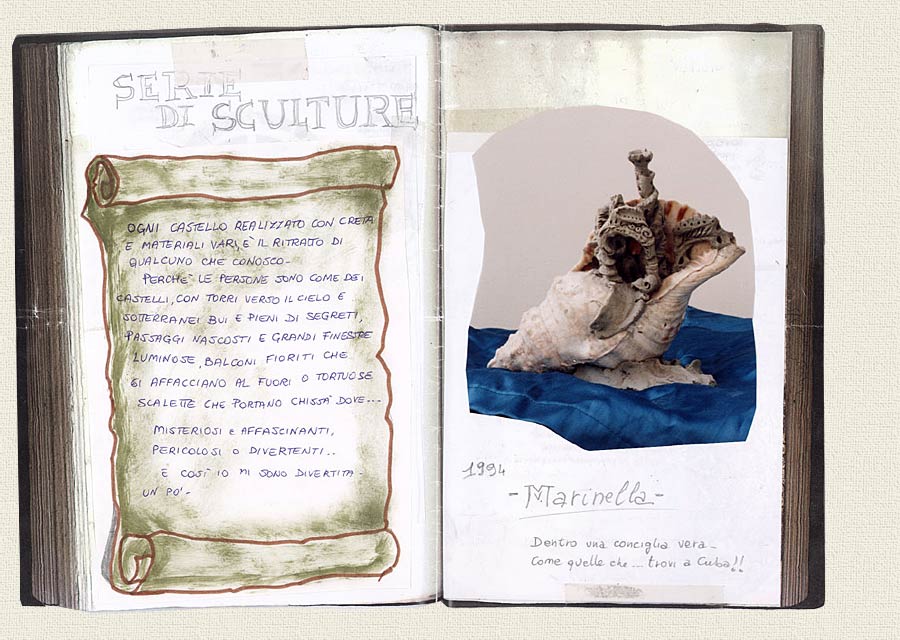 SERIE
DI SCULTURE
OGNI CASTELLO REALIZZATO CON CRETA
E MATERIALI VARI, È IL RITRATTO DI
QUALCUNO CHE CONOSCO-
PERCHE' LE PERSONE SONO COME DEI
CASTELLI, CON TORRI VERSO IL CIELO E
SOTTERRANEI BUI E PIENI DI SEGRETI,
PASSAGGI NASCOSTI E GRANDI FINESTRE
LUMINOSE, BALCONI FIORITI CHE
SI AFFACCIANO AL FUORI O TORTUOSE
SCALETTE CHE PORTANO CHISSÀ DOVE...
MISTERIOSI E AFFASCINANTI,
PERICOLOSI O DIVERTENTI..
E COSÌ IO MI SONO DIVERTITA-
UN PO'-
1994
-Marinella-
Dentro una conciglia vera-
Come quelle che... trovi a Cuba!!